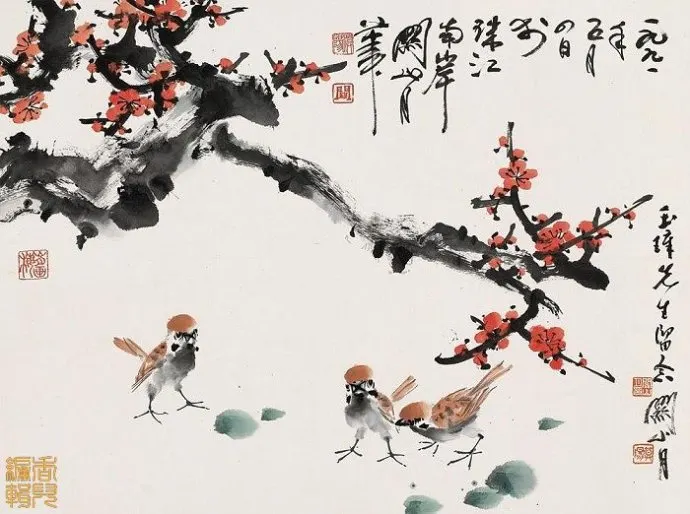 一九九一
年
五月
四日
於
珠江
南岸
關山月
筆
玉璋先生留念
關山月